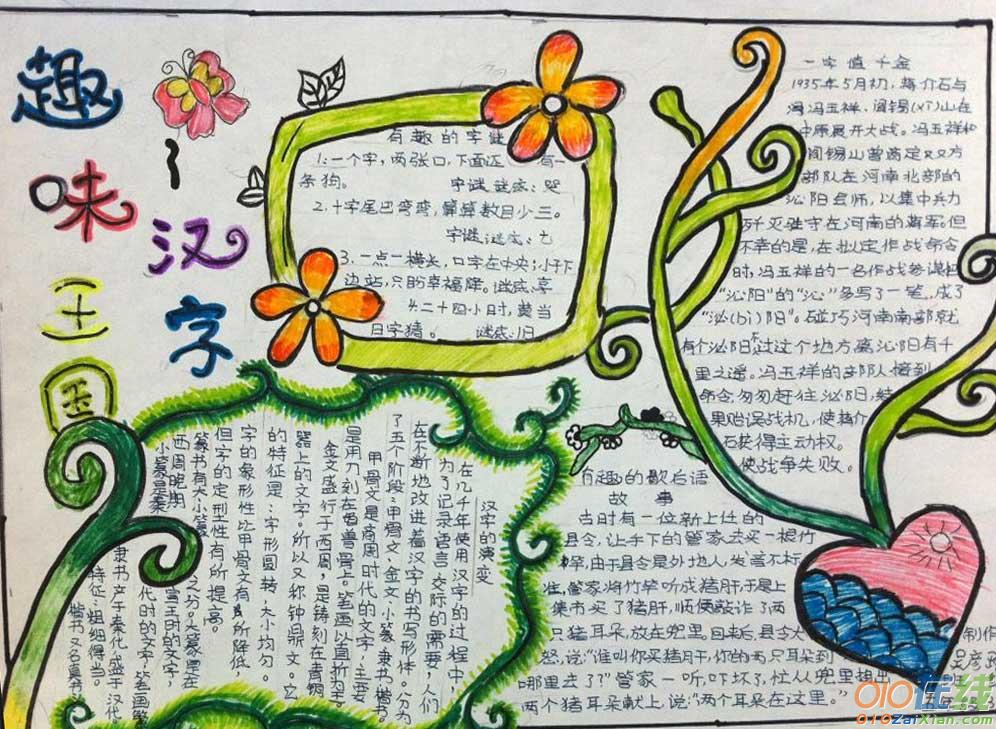 趣味王国
汉字
有趣的字谜
1.一个字，两张口，下面还 有一
条狗。 字谜谜底：哭
2.十字尾巴弯弯，算算数目少三。
字谜谜底：七
3.一点一横长，口字在中央；小子下
边站，只盼幸福降。谜底：享
4.二十四小时，黄当
日字猜。 谜底：旧
一字值千金
1935年5月初，蒋介石与
冯玉祥、阎锡(xī)山在
中原展开大战。冯玉祥和
阎锡山曾商定双方
部队在河南北部的
沁阳会师，以集中兵力
歼灭驻守在河南的蒋军。但
不幸的是，在拟定作战命令
时，冯玉祥的一名作战参谋把
“沁阳”的“沁”多写了一笔，成了
“泌(bì)阳”。碰巧河南南部就
有个泌阳，过这个地方离沁阳有千
里之遥。冯玉祥的部队接到
命令，匆匆赶往泌阳，结
果贻误战机，使蒋介
石获得主动权。
使战争失败。
汉字的演变
在几千年使用汉字的过程中，
为了记录语言、交际的需要，人们
在不断地改进着汉字的书写形体。分为
了五个阶段：甲骨文、金文、小篆、隶书、楷书。
甲骨文是商周时代的文字，主要
是用刀刻在兽骨上，笔画以直折居多。
金文盛行于西周，是铸刻在青铜
器上的文字。所以又称钟鼎文。它
的特征是：字形圆转，大小均匀。
字的象形性比甲骨文有所降低
但字的定型性有所提高。
篆书有大小篆之分。大篆是在
西周晚期
小篆是秦
代时的文字，笔画繁
隶书产于秦代，盛于汉代。
特征：粗细得当。
楷书又名真书
有趣的歇后语
故 事
当时有一位新上任的
县令，让手下的管家去买一根竹
竿，由于县令是外地人，发音不标
准，管家将竹竿听成猪肝，于是上
集市买了猪肝，顺便敲诈了两
只猪耳朵，放在兜里。回来后，县令大
怒，说：“谁叫你买猪肝，你的两只耳朵到
哪里去了？”管家一听，吓坏了，忙从兜里掏出
两个猪耳朵献上，说：“两个耳朵在这里。”
制作
010在线
010zaixian.com